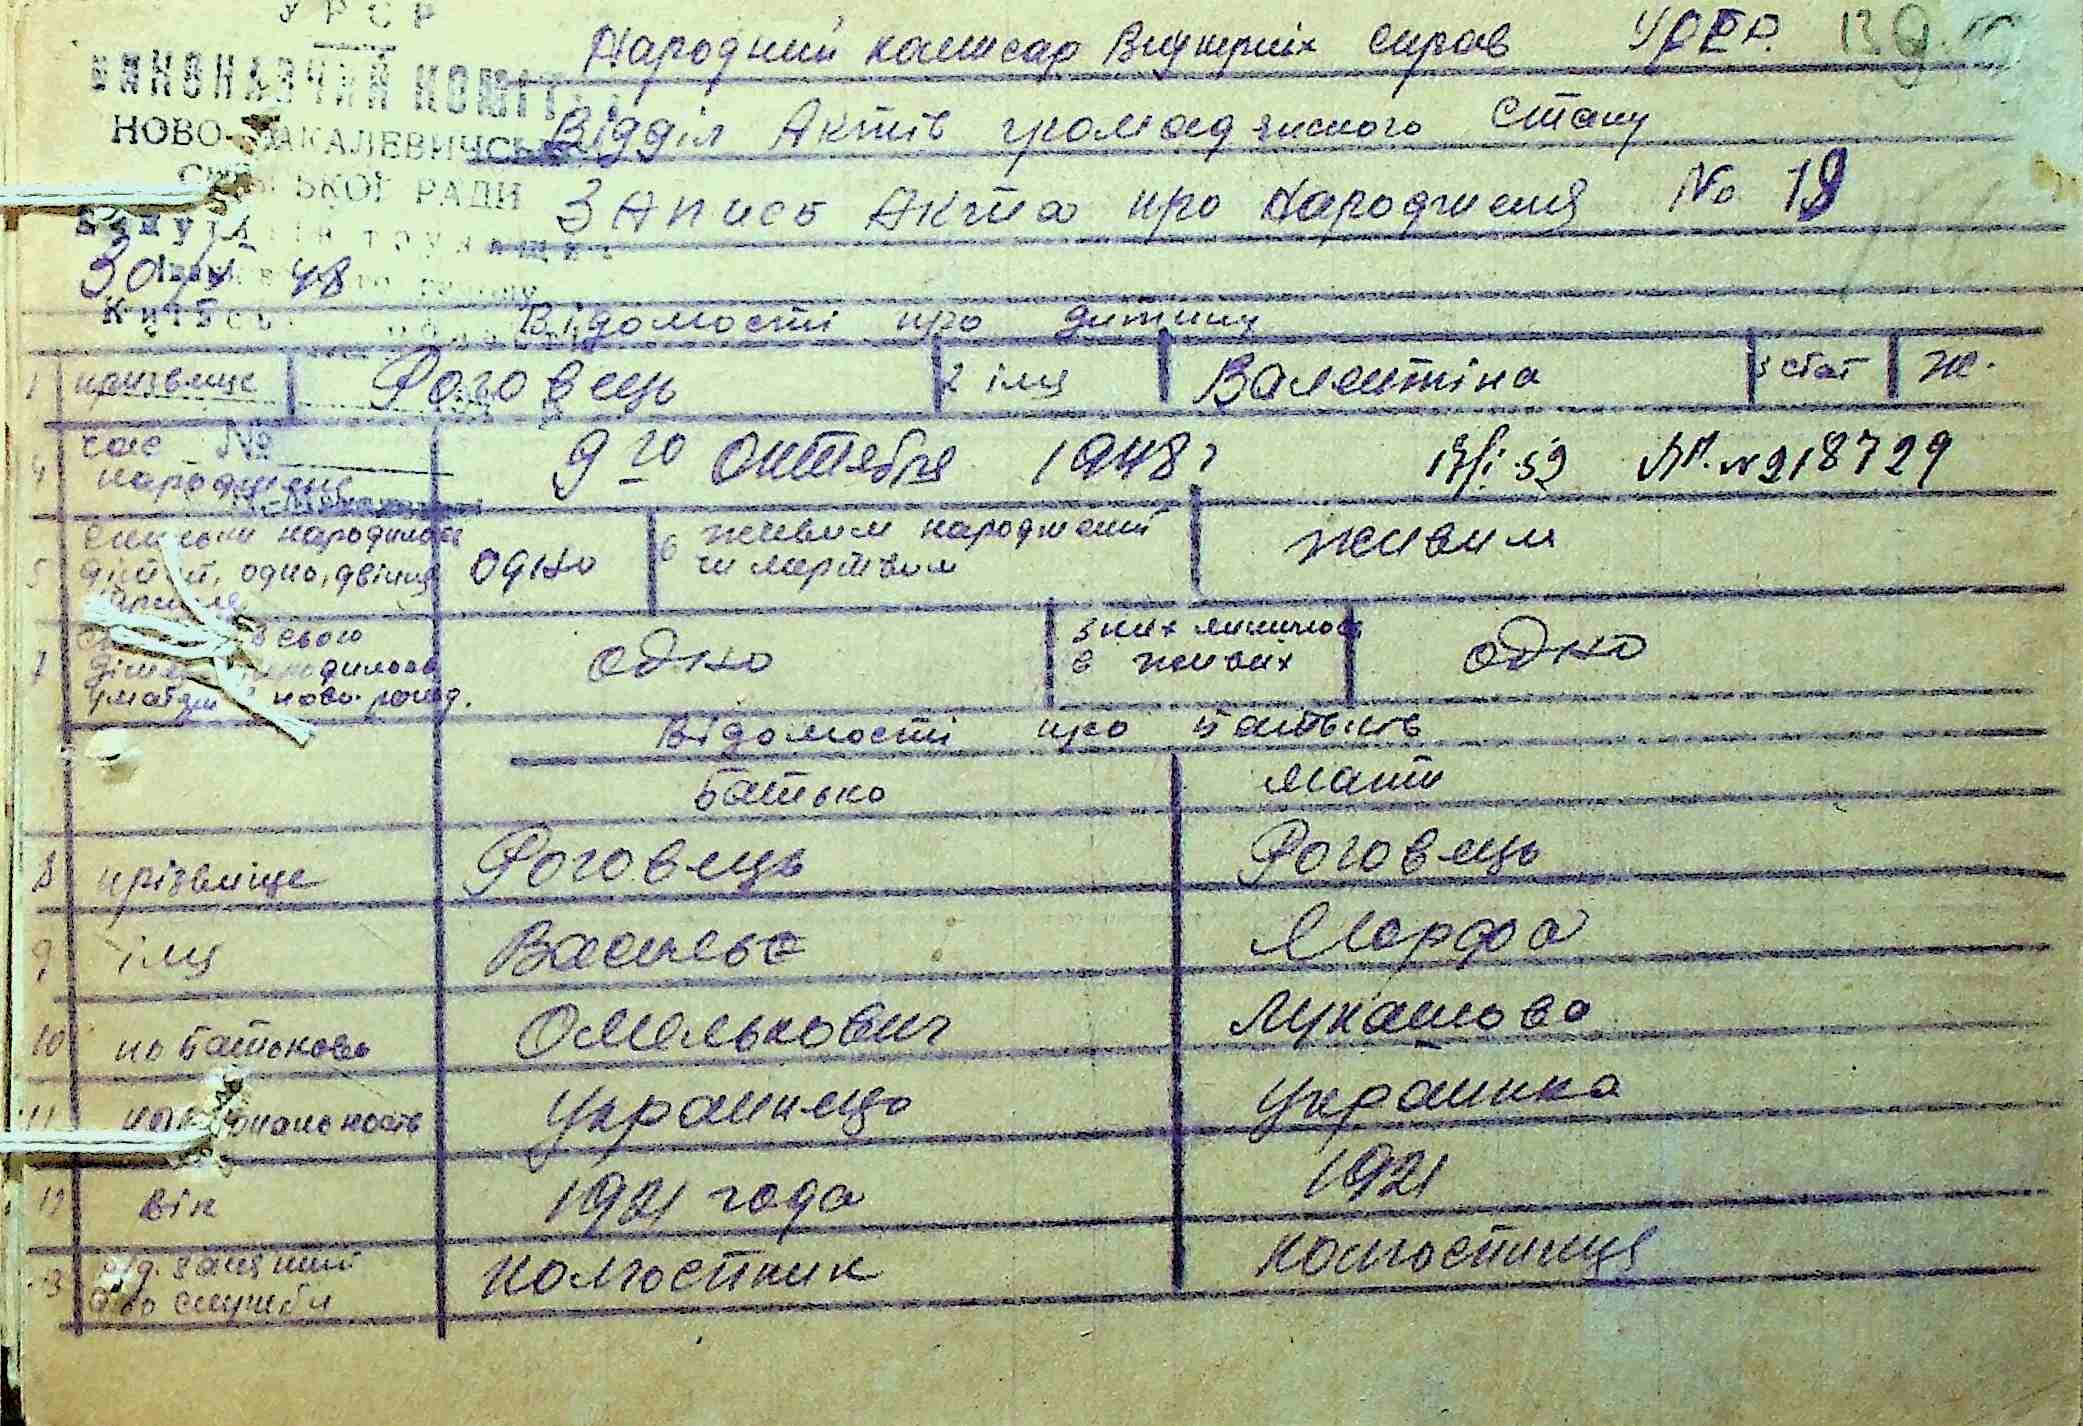 УРСР
ВИКОНАВЧИЙ КОМІТЕТ
НОВО-МАКАЛЕВИЧСЬКОЇ
СІЛЬСЬКОЇ РАДИ
30 48
Народний комисар Внутрніх справ УРСР.
Відділ Актів громадянского стану
Запись Акта про народження № 19
Відомості про дитину
1 призвище Роговець 2 імя Валентіна 3 стат Ж.
4 час народжене 9го Октября 1948 г 218729
5 скильки народилось дітей, одно, двійня одно 6 живим народжений чи мертвим живим
7 всього одно з них лишилось в живих одно
Відомості про батьків
Батько Мати
8 прізвище Роговець Роговець
9 імя Василь Марфа
10 по батькові Омелькович Лукашова
11 національность Украинець Украинка
12 вік 1921 года 1921
13 колгостник колгостниця